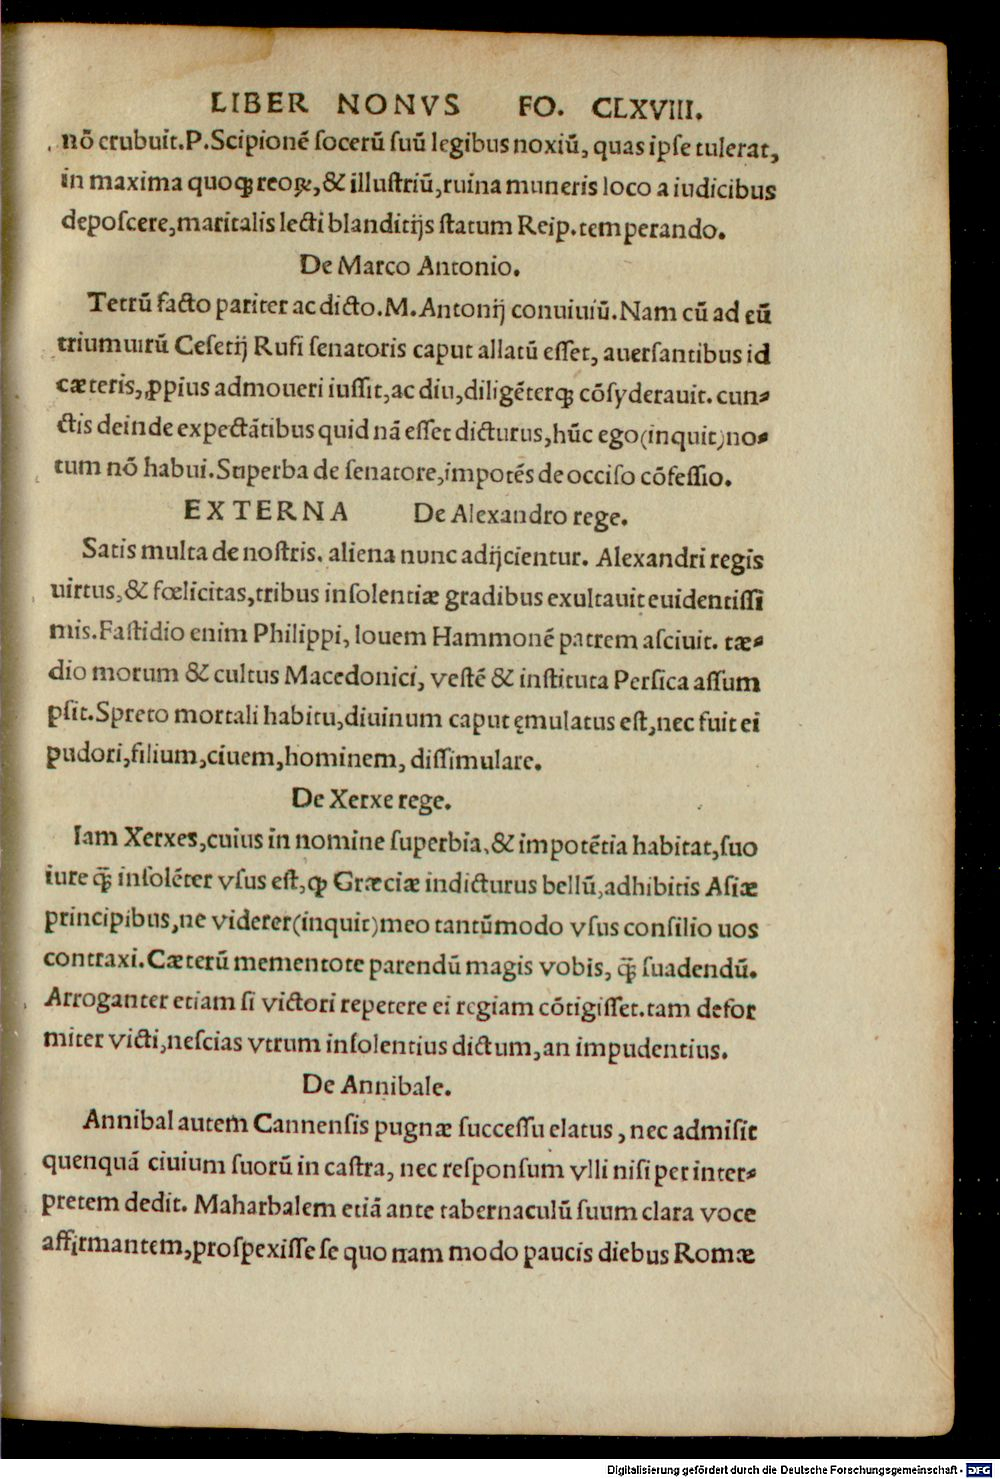 LIBER NONVS FO. CLXVIII.
nō erubuit.P.Scipionē ſocerū ſuū legibus noxiū, quas ipſe tulerat,
in maxima quoqꝫ reoꝝ,& illuſtriū,ruina muneris loco a iudicibus
depoſcere,maritalis lecti blanditijs ſtatum Reip.temperando.
De Marco Antonio.
Tetrū facto pariter ac dicto.M.Antonij conuiuiū.Nam cū ad eū
triumuirū Ceſetij Rufi ſenatoris caput allatū eſſet, auerſantibus id
cæteris, ꝓpius admoueri iuſſit,ac diu,diligēterqꝫ cōſyderauit. cun-
ctis deinde expectātibus quid nā eſſet dicturus,hūc ego(inquit)no-
tum nō habui.Superba de ſenatore,impotēs de occiſo cōfeſſio.
EXTERNA De Alexandro rege.
Satis multa de noſtris. aliena nunc adijcientur. Alexandri regis
uirtus,& fœlicitas,tribus inſolentiæ gradibus exultauit euidentiſſi
mis.Faſtidio enim Philippi, Iouem Hammonē patrem aſciuit. tæ-
dio morum & cultus Macedonici, veſtē & inſtituta Perſica aſſum
pſit.Spreto mortali habitu,diuinum caput ęmulatus eſt,nec fuit ei
pudori,filium,ciuem,hominem, diſſimulare.
De Xerxe rege.
Iam Xerxes,cuius in nomine ſuperbia,& impotētia habitat,ſuo
iure q̄ꝫ inſolēter vſus eſt,ꝙ Græciæ indicturus bellū,adhibitis Aſiæ
principibus,ne viderer(inquit)meo tantūmodo vſus conſilio uos
contraxi.Cæterū mementote parendū magis vobis, q̄ꝫ ſuadendū.
Arroganter etiam ſi victori repetere ei regiam cōtigiſſet.tam defor
miter victi,neſcias vtrum inſolentius dictum,an impudentius.
De Annibale.
Annibal autem Cannenſis pugnæ ſucceſſu elatus , nec admiſit
quenquā ciuium ſuorū in caſtra, nec reſponſum vlli niſi per inter-
pretem dedit. Maharbalem etiā ante tabernaculū ſuum clara voce
affirmantem,proſpexiſſe ſe quo nam modo paucis diebus Romæ
Digitalisierung gefördert durch die Deutsche Forschungsgemeinschaft - DFG